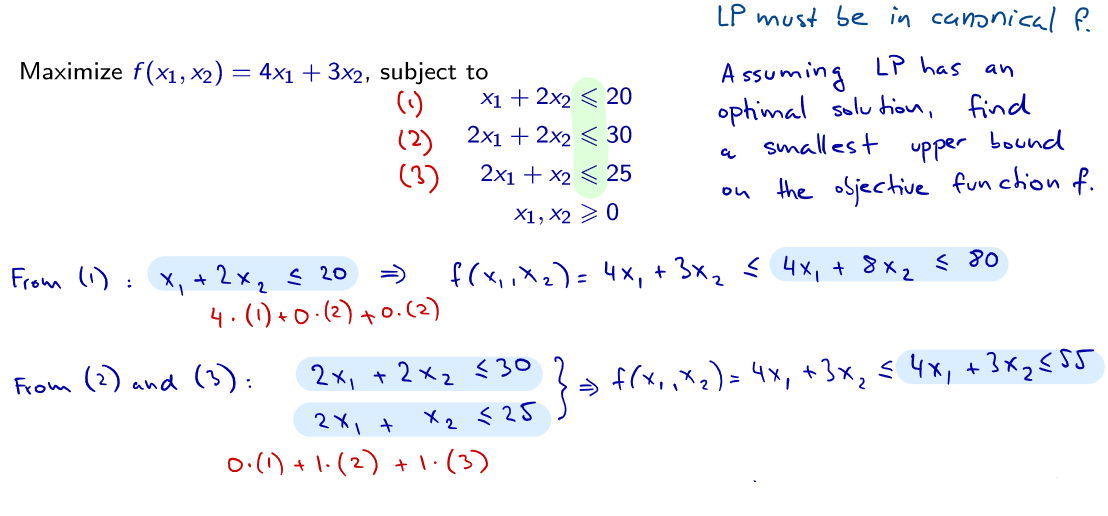 LP must be in canonical f.
Maximize f(x₁, x₂) = 4x₁ + 3x₂, subject to
(1) x₁ + 2x₂ ⩽ 20
(2) 2x₁ + 2x₂ ⩽ 30
(3) 2x₁ + x₂ ⩽ 25
x₁, x₂ ⩾ 0
Assuming LP has an
optimal solution, find
a smallest upper bound
on the objective function f.
From (1) : x₁ + 2x₂ ≤ 20 ⇒ f(x₁, x₂) = 4x₁ + 3x₂ ≤ 4x₁ + 8x₂ ≤ 80
4·(1) + 0·(2) + 0·(2)
From (2) and (3) : 2x₁ + 2x₂ ≤ 30 } ⇒ f(x₁, x₂) = 4x₁ + 3x₂ ≤ 4x₁ + 3x₂ ≤ 55
2x₁ + x₂ ≤ 25
0·(1) + 1·(2) + 1·(3)